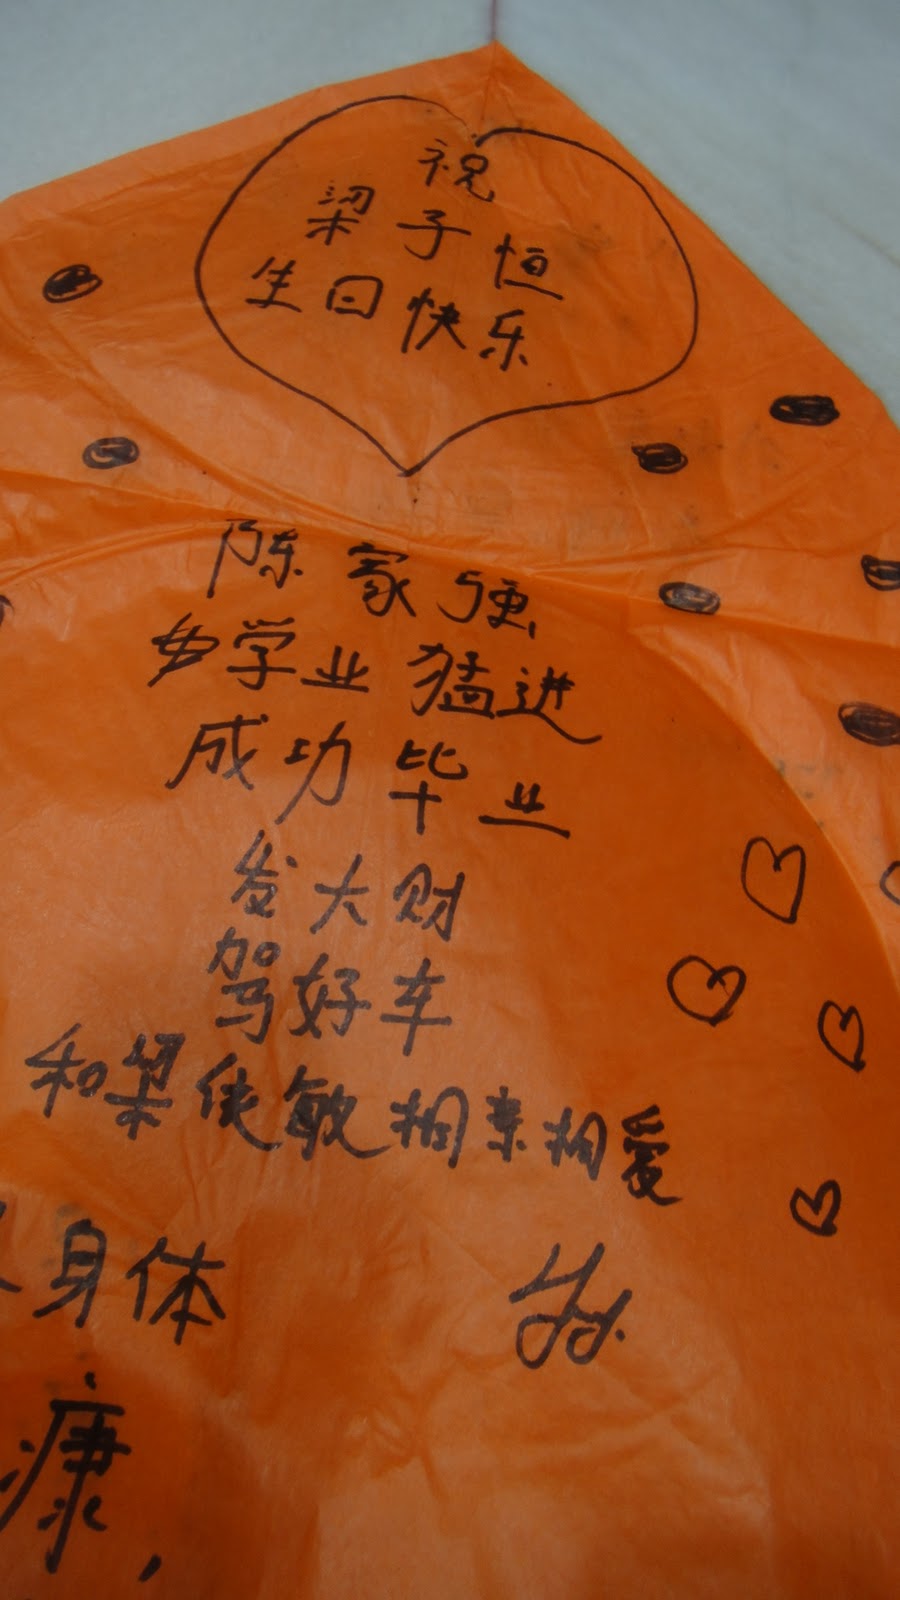 祝
梁子恒
生日快乐
陈家强
学业猛进
成功毕业
发大财
驾好车
和梁侠敏相亲相爱
身体
康,